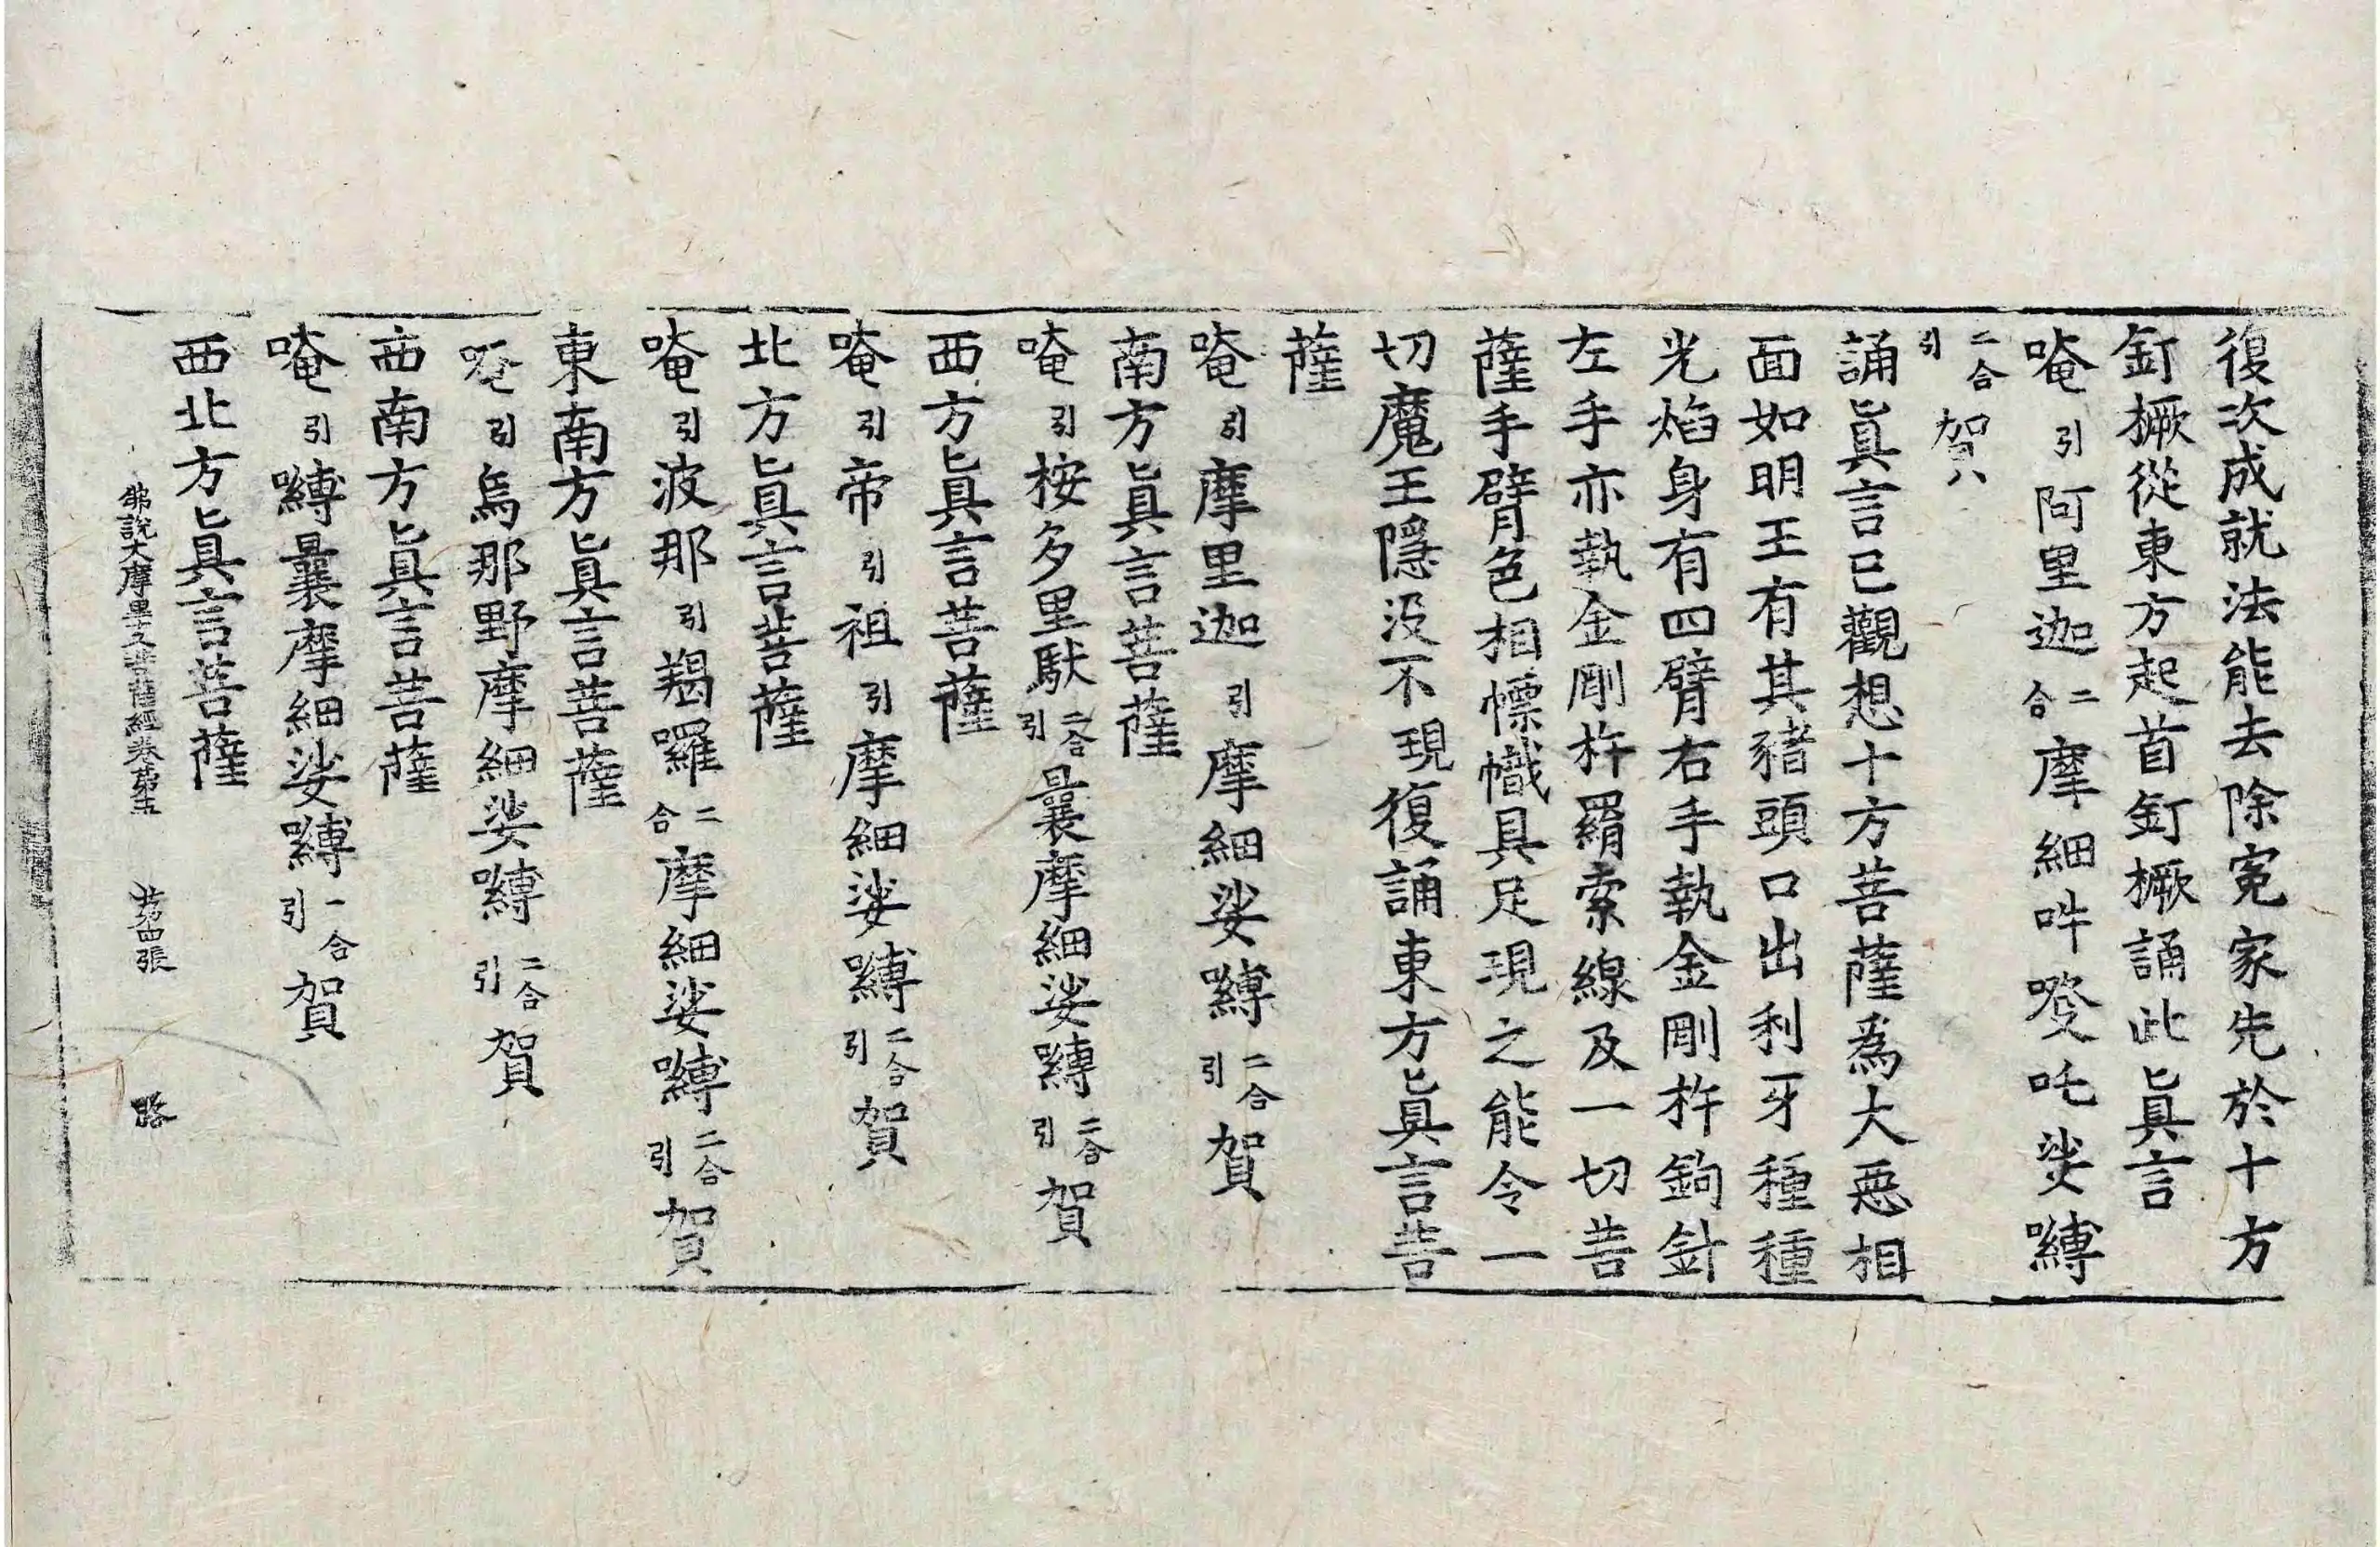 復次成就法能去除寃家先於十方
釘橛從東方起首釘橛誦此眞言
唵引阿里迦二合摩細吽癹吒娑嚩
二合引賀八
誦眞言已觀想十方菩薩爲大惡相
面如明王有其豬頭口出利牙種種
光焰身有四臂右手執金剛杵鉤針
左手亦執金剛杵羂索線及一切菩
薩手臂色相幖幟具足現之能令一
切魔王隱沒不現復誦東方眞言菩
薩
唵引摩里迦引摩細娑嚩二合引賀
南方眞言菩薩
唵引桉多里馱二合引曩摩細娑嚩二合引賀
西方眞言菩薩
唵引帝引祖引摩細娑嚩二合引賀
北方眞言菩薩
唵引波那引羯囉二合摩細娑嚩二合引賀
東南方眞言菩薩
唵引烏那野摩細娑嚩二合引賀
西南方眞言菩薩
唵引嚩曩摩細娑嚩二合引賀
西北方眞言菩薩
佛說大摩里支菩薩經卷第五 第四張 路